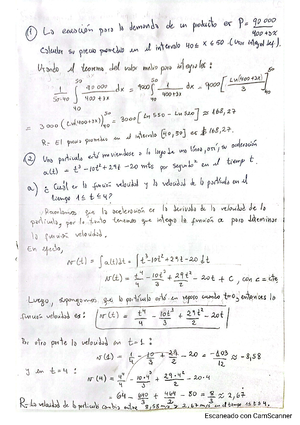 ① La ecuación para la demanda de un producto es P = 90 000 / 400+3x
Calcular su precio promedio en el intervalo 40 ≤ x ≤ 50 (Use integral def).
Usando el teorema del valor medio para integrales:
1/(50-40) ∫₄₀⁵⁰ 90 000/(400+3x) dx = 9000 ∫₄₀⁵⁰ 1/(400+3x) dx = 9000 [Ln(400+3x)/3]₄₀⁵⁰
= 3000 (Ln(400+3x))₄₀⁵⁰ = 3000 [Ln 550 - Ln 520] ≈ 168,27
R- El precio promedio en el intervalo [40,50] es $ 168,27.
② Una partícula está moviéndose a lo largo de una línea, su aceleración
a(t) = t³ - 10t² + 29t - 20 mts por segundo² en el tiempo t.
a) ¿Cuál es la función velocidad y la velocidad de la partícula en el
tiempo 1 ≤ t ≤ 4?
Recordemos que la aceleración es la derivada de la velocidad de la
partícula, por lo tanto tenemos que integrar la función a para determinar
la función velocidad.
En efecto,
v(t) = ∫ a(t) dt = ∫ t³ - 10t² + 29t - 20 dt
v(t) = t⁴/4 - 10t³/3 + 29t²/2 - 20t + C, con c = cte
Luego, supongamos que la partícula está en reposo cuando t=0, entonces la
función velocidad es: v(t) = t⁴/4 - 10t³/3 + 29t²/2 - 20t
Por otro parte la velocidad en t=1:
v(1) = 1/4 - 10/3 + 29/2 - 20 = -103/12 ≈ -8,58
y en t=4:
v(4) = 4⁴/4 - 10·4³/3 + 29·4²/2 - 20·4
= 64 - 640/3 + 464/2 - 80 = 8/3 ≈ 2,67
R- La velocidad de la partícula 8,58 m/s 2,67 m/s en el 1 ≤ t ≤ 4.
Escaneado con CamScanner